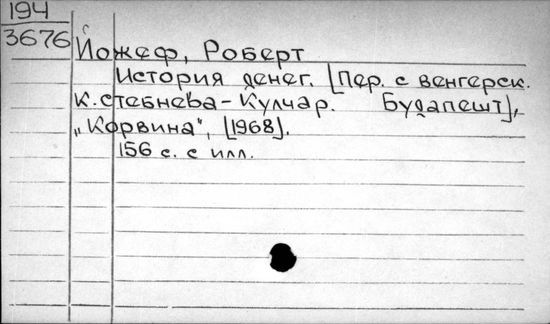 194
3676
Йожеф, Роберт
История денег. [Пер. с венгерск.
К. Стебнева-Кулчар. Будапешт],
„Корвина", [1968].
156 с. с илл.